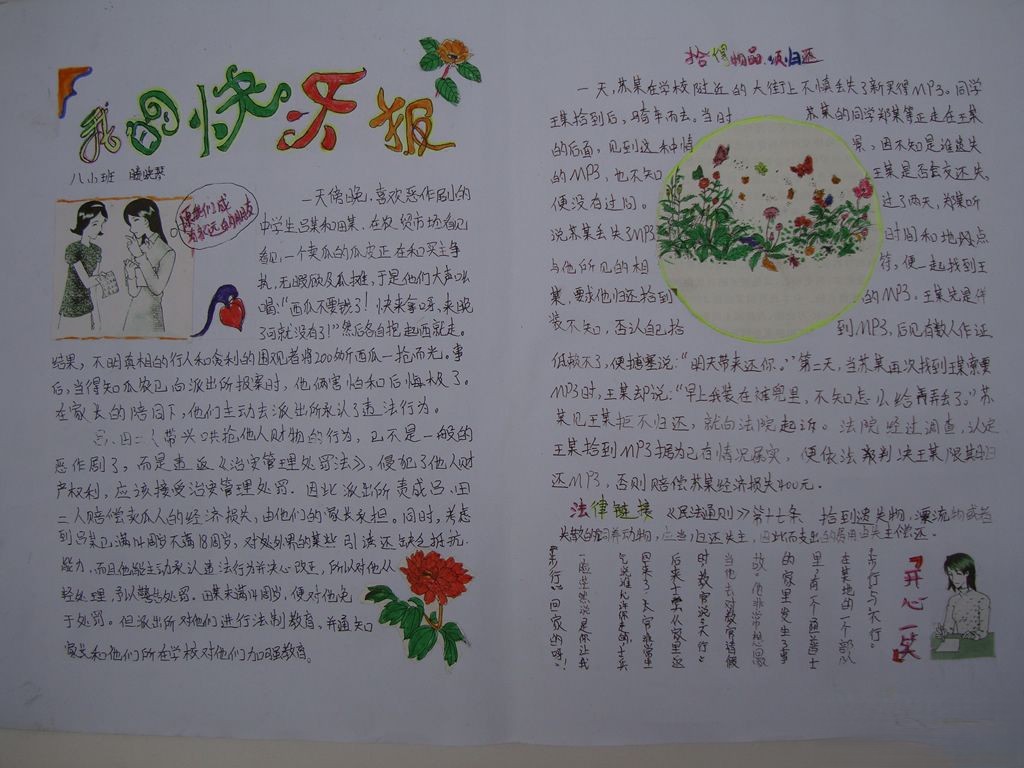 我的快乐报
八小班
愿我们成
为永远的朋友
一天傍晚,喜欢恶作剧的
中学生吕某和田某,在农贸市场看见
看见一个卖瓜的瓜皮正在和买主争
执,无暇顾及瓜摊,于是他们大声吆
喝:“西瓜不要钱了!快来拿呀,来晚
了可就没有了!”然后各自抱起西就走。
结果,不明真相的行人和贪利的围观者将200多斤西瓜一抢而光。事
后,当得知瓜农已向派出所报案时,他俩害怕和后悔极了。
在家长的陪同下,他们主动去派出所承认了违法行为。
吕、田二人带头哄抢他人财物的行为,已不是一般的
恶作剧了,而是违反《治安管理处罚法》,侵犯了他人财
产权利,应该接受治安管理处罚.因此派出所责成吕、田
二人赔偿卖瓜人的经济损失,由他们的家长承担。同时,考虑
到吕某已满14周岁不满18周岁,对处外界的某些引诱还缺乏抵抗
能力,而且他能主动承认违法行为并决心改正,所以对他从
轻处理,予以警告处罚.田某未满14周岁,便对他免
于处罚。但派出所对他们进行法制教育,并通知
家长和他们所在学校对他们加强教育。
拾得物品,须归还
一天,苏某在学校附近的大街上不慎丢失了新买得MP3。同学
王某拾到后,骑车而去。当时 苏某的同学郑某等正走在王某
的后面,见到这种情 景,因不知是谁遗失
的MP3,也不知 王某是否套交还失
便没有过问。 过了两天,郑某听
说苏某丢失了MP3 时间和地段点
与他所见的相 符,便一起找到王
某,要求他归还拾到 的MP3.王某先是佯
装不知,否认自己拾 到MP3,后见有数人作证
抵赖不了,便搪塞说:“明天带来还你。”第二天,当苏某再次找到王某索要
MP3时,王某却说:“早上我装在裤兜里,不知怎么给弄丢了。”苏
某见王某拒不归还,就向法院起诉。法院经过调查,认定
王某拾到MP3据为己有情况属实,便依法裁判决王某限期归
还MP3,否则赔偿苏某经济损失400元.
法律链接 《民法通则》第七十条 拾到遗失物,漂流物或者
失散的饲养动物,应当归还失主,因此而支出的费用由失主偿还。
开心一笑
步行与天行。
在某地的一个部队
里,有个通道士
的家里发生了事
故。他非常想回家